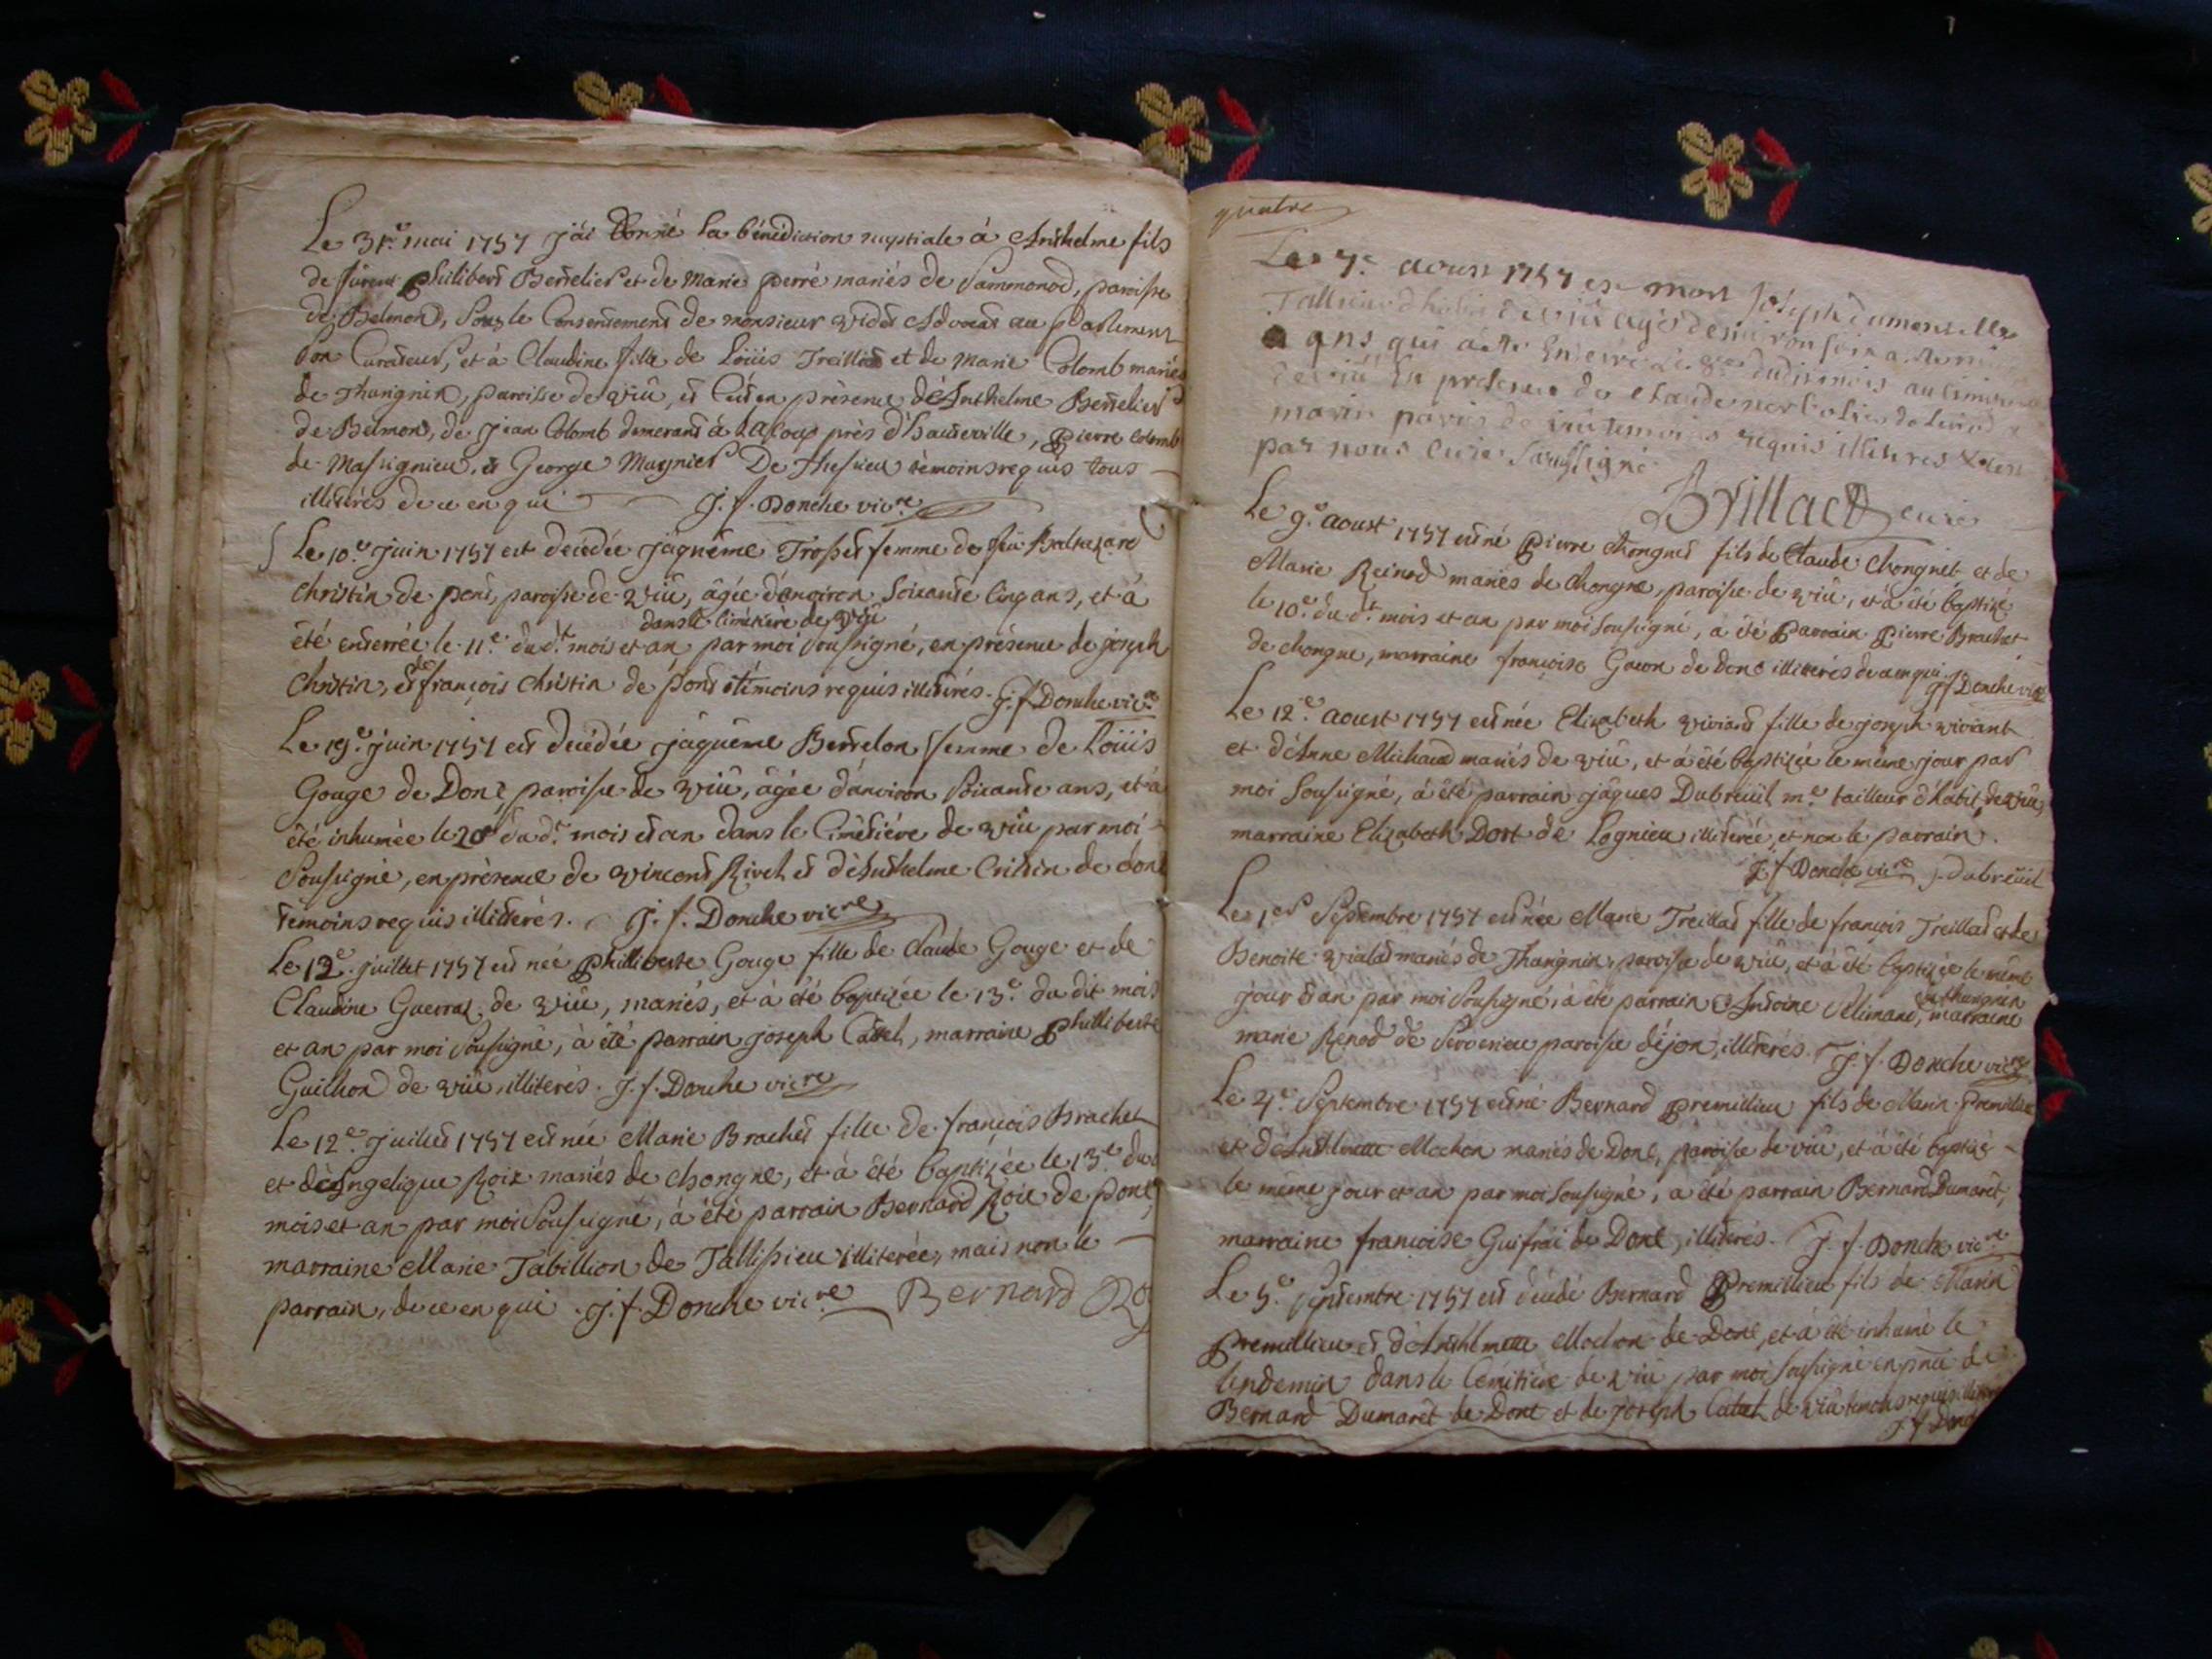 Le 31.e mai 1757 j'ai donné la bénédiction nuptiale à Anthelme fils
de furent Philibert Berrelier et de Marie perré mariés de Sammonod, paroisse
de Belmon, sous le Consentement de monsieur Advocat au parlement
son Curateur, et à Claudine fille de Loüis Treillat et de Marie Colomb mariés
de Thangnin, paroisse de viû, et c'est en présence d'Anthelme Berrelier
de Belmon, de Jean Colomb demerant à Lacoup près d'hauteville, Pierre Colomb
de Massignieu, et George Magnier De témoins requis tous
illiterés de ce enquis J. f. Donche vic.re
Le 10.e juin 1757 est decédée jaquême femme de feu Baltazard
christin de pont, paroisse de viû, âgée d'environ soixante cinq ans, et à
dans le cimétière de viû
été enterrée le 11.e du d.t mois et an par moi soussigné, en présence de joseph
Christin, et de françois christin de pont témoins requis illiterés. J. f. Donche vic.re
Le 19.e juin 1757 est decédée jaquême Berrelon femme de Loüis
Gouge de Donc, paroisse de viû, âgée d'environ soixante ans, et à
été inhumée le 20.e du d.t mois et an dans le Cimétière de viû par moi
soussigné, en présence de vincent Rivet et d'Anthelme Cristin de donc
témoins requis illiterés. J. f. Donche vic.re
Le 12.e juillet 1757 est née Philliberte Gouge fille de Claude Gouge et de
Claudine Guerraz de viû, mariés, et à été baptizée le 13.e du dit mois
et an par moi soussigné, à été parrain joseph Catel, marraine Philliberte
Guilhon de viû, illiterés. J. f. Donche vicre
Le 12.e juillet 1757 est née Marie Brachet fille de françois Brachet
et d'Angelique Roix mariés de chongne, et à été baptizée le 13.e du d
mois et an par moi soussigné, à été parrain Bernard Roix de pont,
marraine Marie Tabillion de Tallissieu illiterée, mais non le
parrain, de ce enquis. J. f. Donche vic.re Bernard
quatre
Le 7.e aoust 1757 est mort joseph dumont
Talleur d'habit de viû agé d'environ
ans qui a été Enterré Le 8.e dudit mois au cimetiere
de viû En presence de Claude
marin temoins requis illitéres
par nous Curé Soussigné
Brillact curé
Le 9.e aoust 1757 est né Pierre chongnet fils de Claude Chongnet et de
Marie Reinod mariés de chongne, paroisse de viû, et à été baptizé
le 10.e du d.t mois et an par moi soussigné, a été Parrain Pierre Brachet
de chongne, marraine françoise Gacon de Donc illiterés de ce enquis J. f. Donche vicre
Le 12.e aoust 1757 est née Elizabeth viviant fille de joseph viviant
et d'Anne Michaud mariés de viû, et à été baptizée le même jour par
moi soussigné, à été parrain jâques Dubreüil m.e tailleur d'habit, de viû,
marraine Elizabeth Dort de Lognieu illiterée, et non le parrain.
J. f. Donche vicre J. dubreüil
Le 1.er Septembre 1757 est née Marie Treillat fille de françois Treillat et de
Benoite vialat mariés de Thangnin, paroisse de viû, et à été baptizée le même
de thangnin
jour et an par moi soussigné, à été parrain Antoine Sélimand, marraine
marie Renod de Serverieu paroisse déjon, illiterés. J. f. Donche vicre
Le 4.e Septembre 1757 est né Bernard Premillieu fils de Marin Premillieu
et d'Anthlmette Mochon mariés de Donc, paroisse de viû, et à été baptizé
le même jour et an par moi soussigné, a été parrain Bernard Dumarêt,
marraine françoise Guifrai de Donc, illiterés. J. f. Donche vic.re
Le 5.e septembre 1757 est décédé Bernard Premillieu fils de Marin
Premillieu et d'Anthlmette Mochon de Donc, et à été inhumé le
lendemin dans le Cémitière de viû par moi soussigné en présence de
Bernard Dumarêt de Donc et de joseph Catel de viû temoins requis
J. f Donc